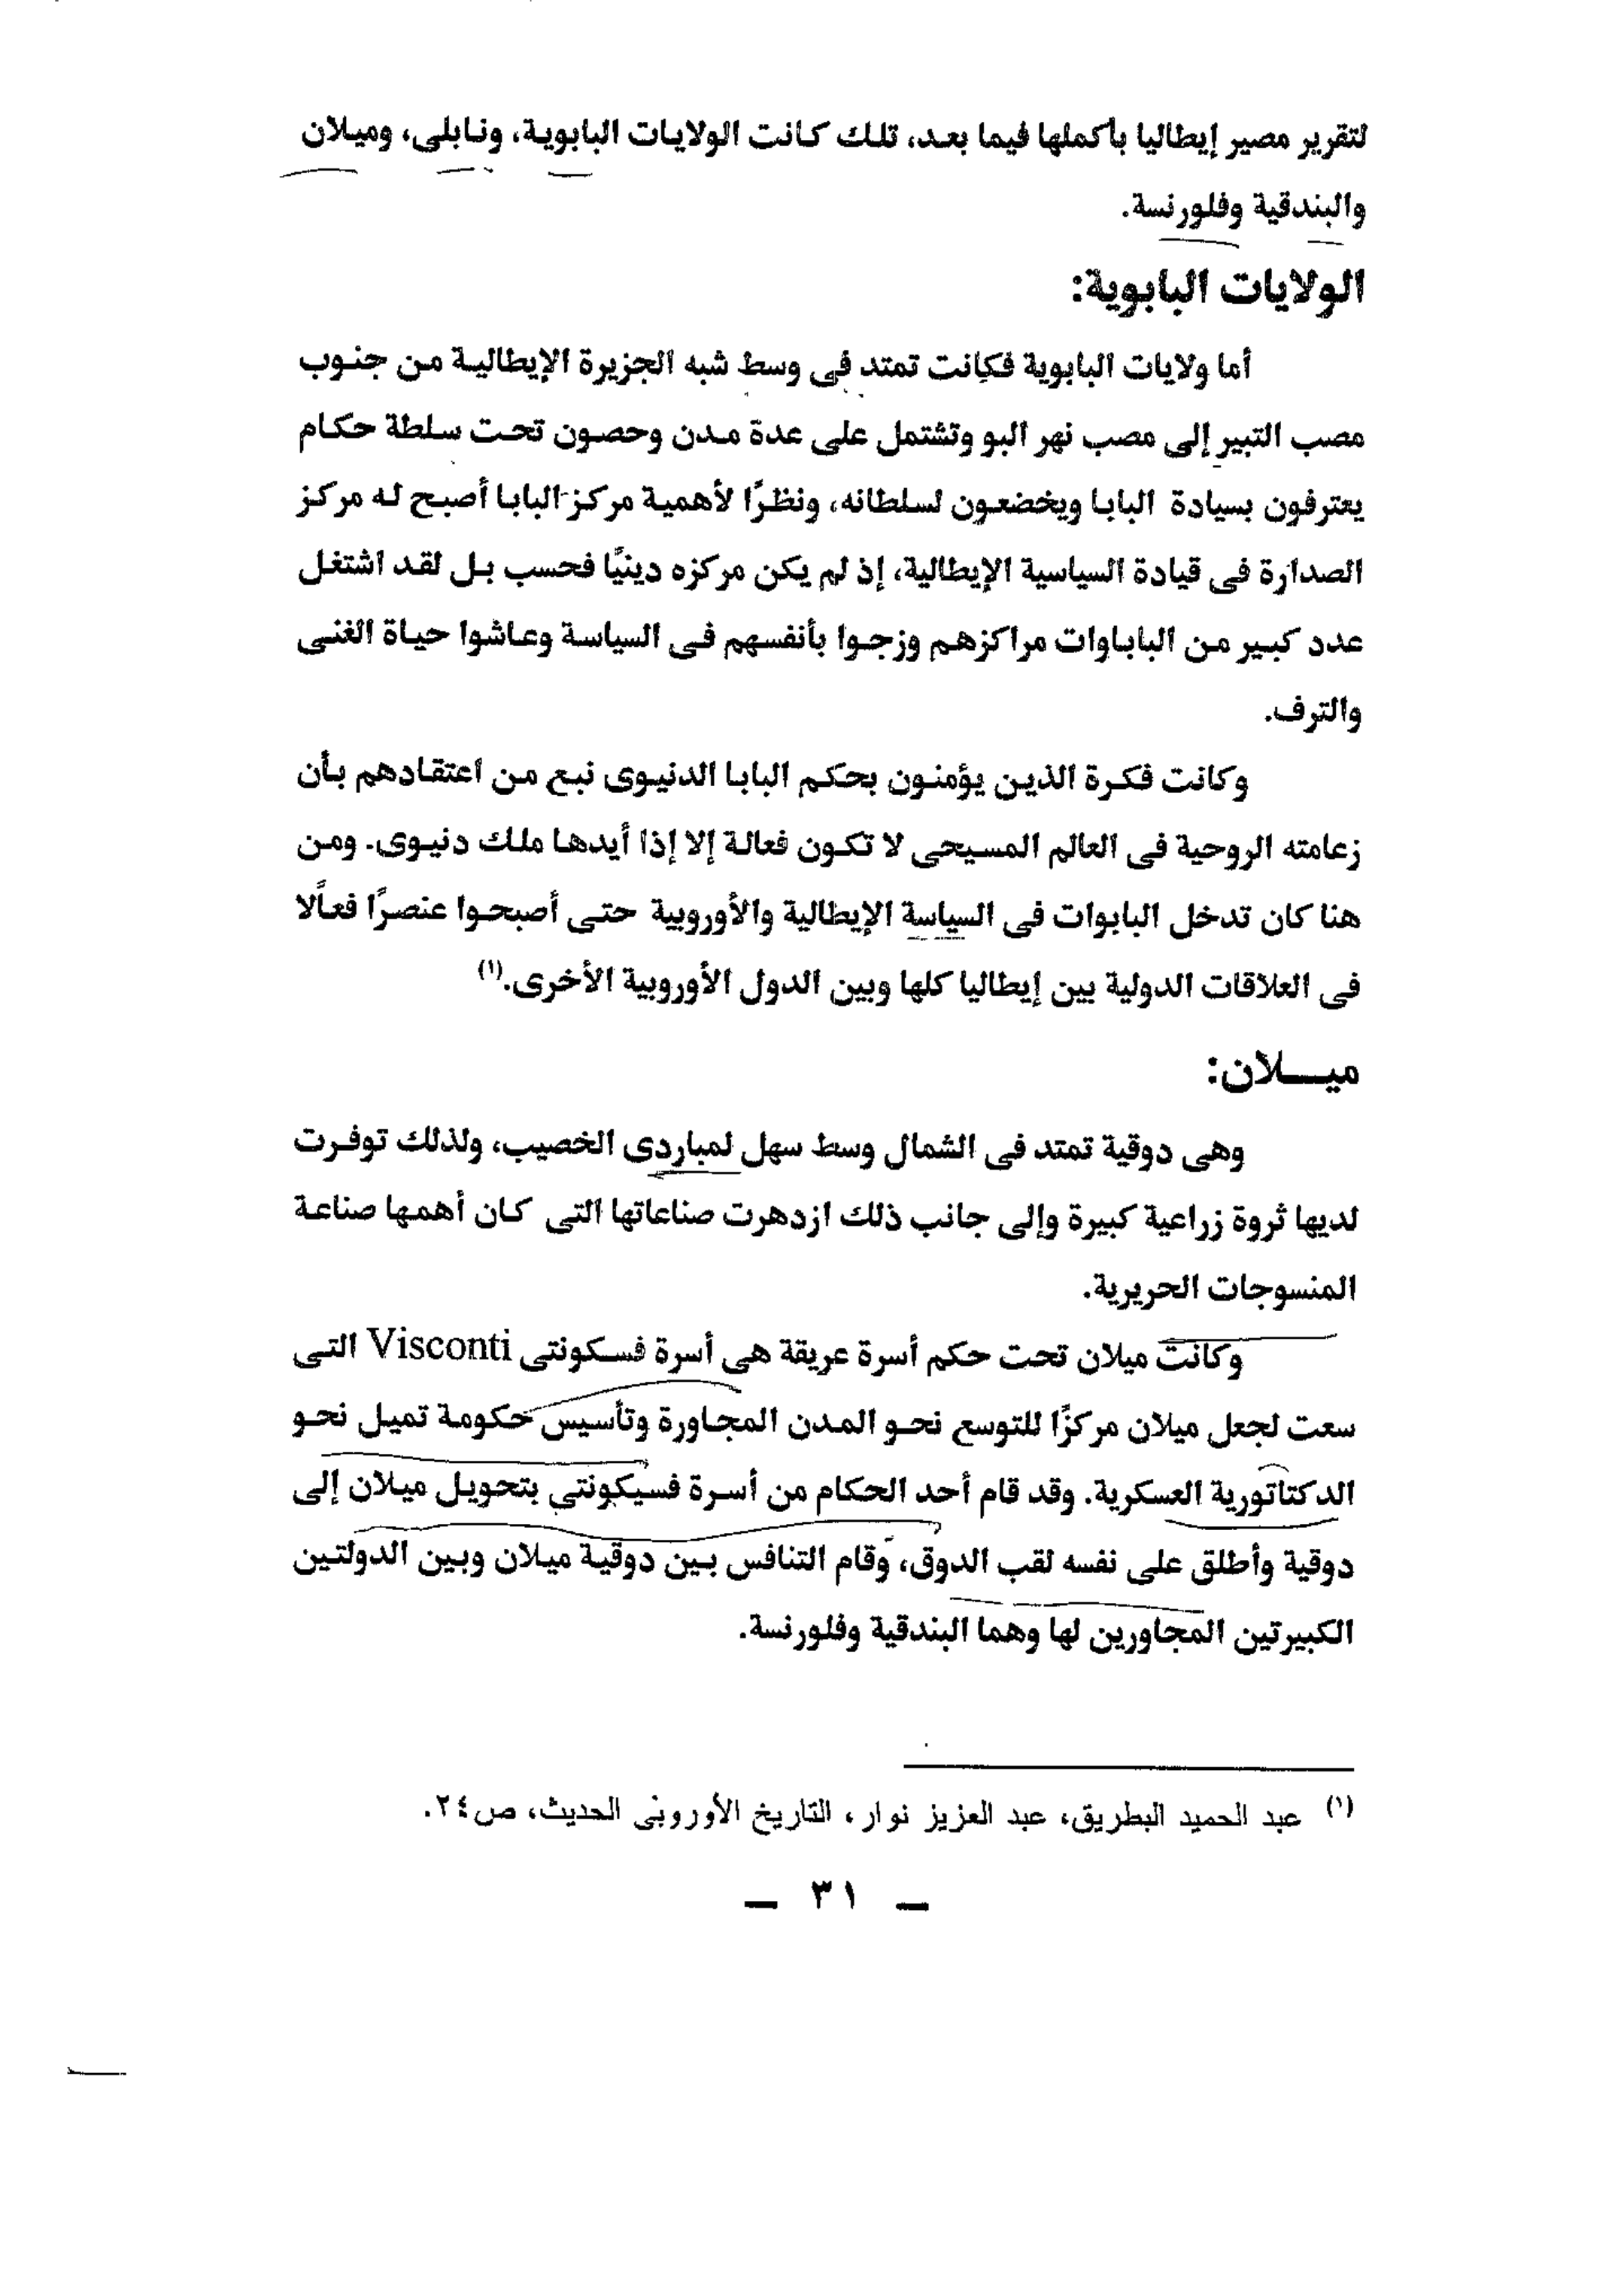 لتقرير مصير إيطاليا بأكملها فيما بعد، تلك كانت الولايات البابوية، ونابلى، وميلان
والبندقية وفلورنسة.
الولايات البابوية:
أما ولايات البابوية فكانت تمتد فى وسط شبه الجزيرة الإيطالية من جنوب
مصب التيبر إلى مصب نهر البو وتشتمل على عدة مدن وحصون تحت سلطة حكام
يعترفون بسيادة البابا ويخضعون لسلطانه، ونظرًا لأهمية مركز البابا أصبح له مركز
الصدارة فى قيادة السياسية الإيطالية، إذ لم يكن مركزه دينيًا فحسب بل لقد اشتغل
عدد كبير من الباباوات مراكزهم وزجوا بأنفسهم فى السياسة وعاشوا حياة الغنى
والترف.
وكانت فكرة الذين يؤمنون بحكم البابا الدنيوى نبع من اعتقادهم بأن
زعامته الروحية فى العالم المسيحى لا تكون فعالة إلا إذا أيدها ملك دنيوى. ومن
هنا كان تدخل البابوات فى السياسة الإيطالية والأوروبية حتى أصبحوا عنصرًا فعالًا
فى العلاقات الدولية بين إيطاليا كلها وبين الدول الأوروبية الأخرى.(١)
ميـــلان:
وهى دوقية تمتد فى الشمال وسط سهل لمباردى الخصيب، ولذلك توفرت
لديها ثروة زراعية كبيرة وإلى جانب ذلك ازدهرت صناعاتها التى كان أهمها صناعة
المنسوجات الحريرية.
وكانت ميلان تحت حكم أسرة عريقة هى أسرة فسكونتى Visconti التى
سعت لجعل ميلان مركزًا للتوسع نحو المدن المجاورة وتأسيس حكومة تميل نحو
الدكتاتورية العسكرية. وقد قام أحد الحكام من أسرة فسيكونتى بتحويل ميلان إلى
دوقية وأطلق على نفسه لقب الدوق، وقام التنافس بين دوقية ميلان وبين الدولتين
الكبيرتين المجاورين لها وهما البندقية وفلورنسة.
(١) عبد الحميد البطريق، عبد العزيز نوار، التاريخ الأوروبى الحديث، ص٢٤.
– ٣١ –